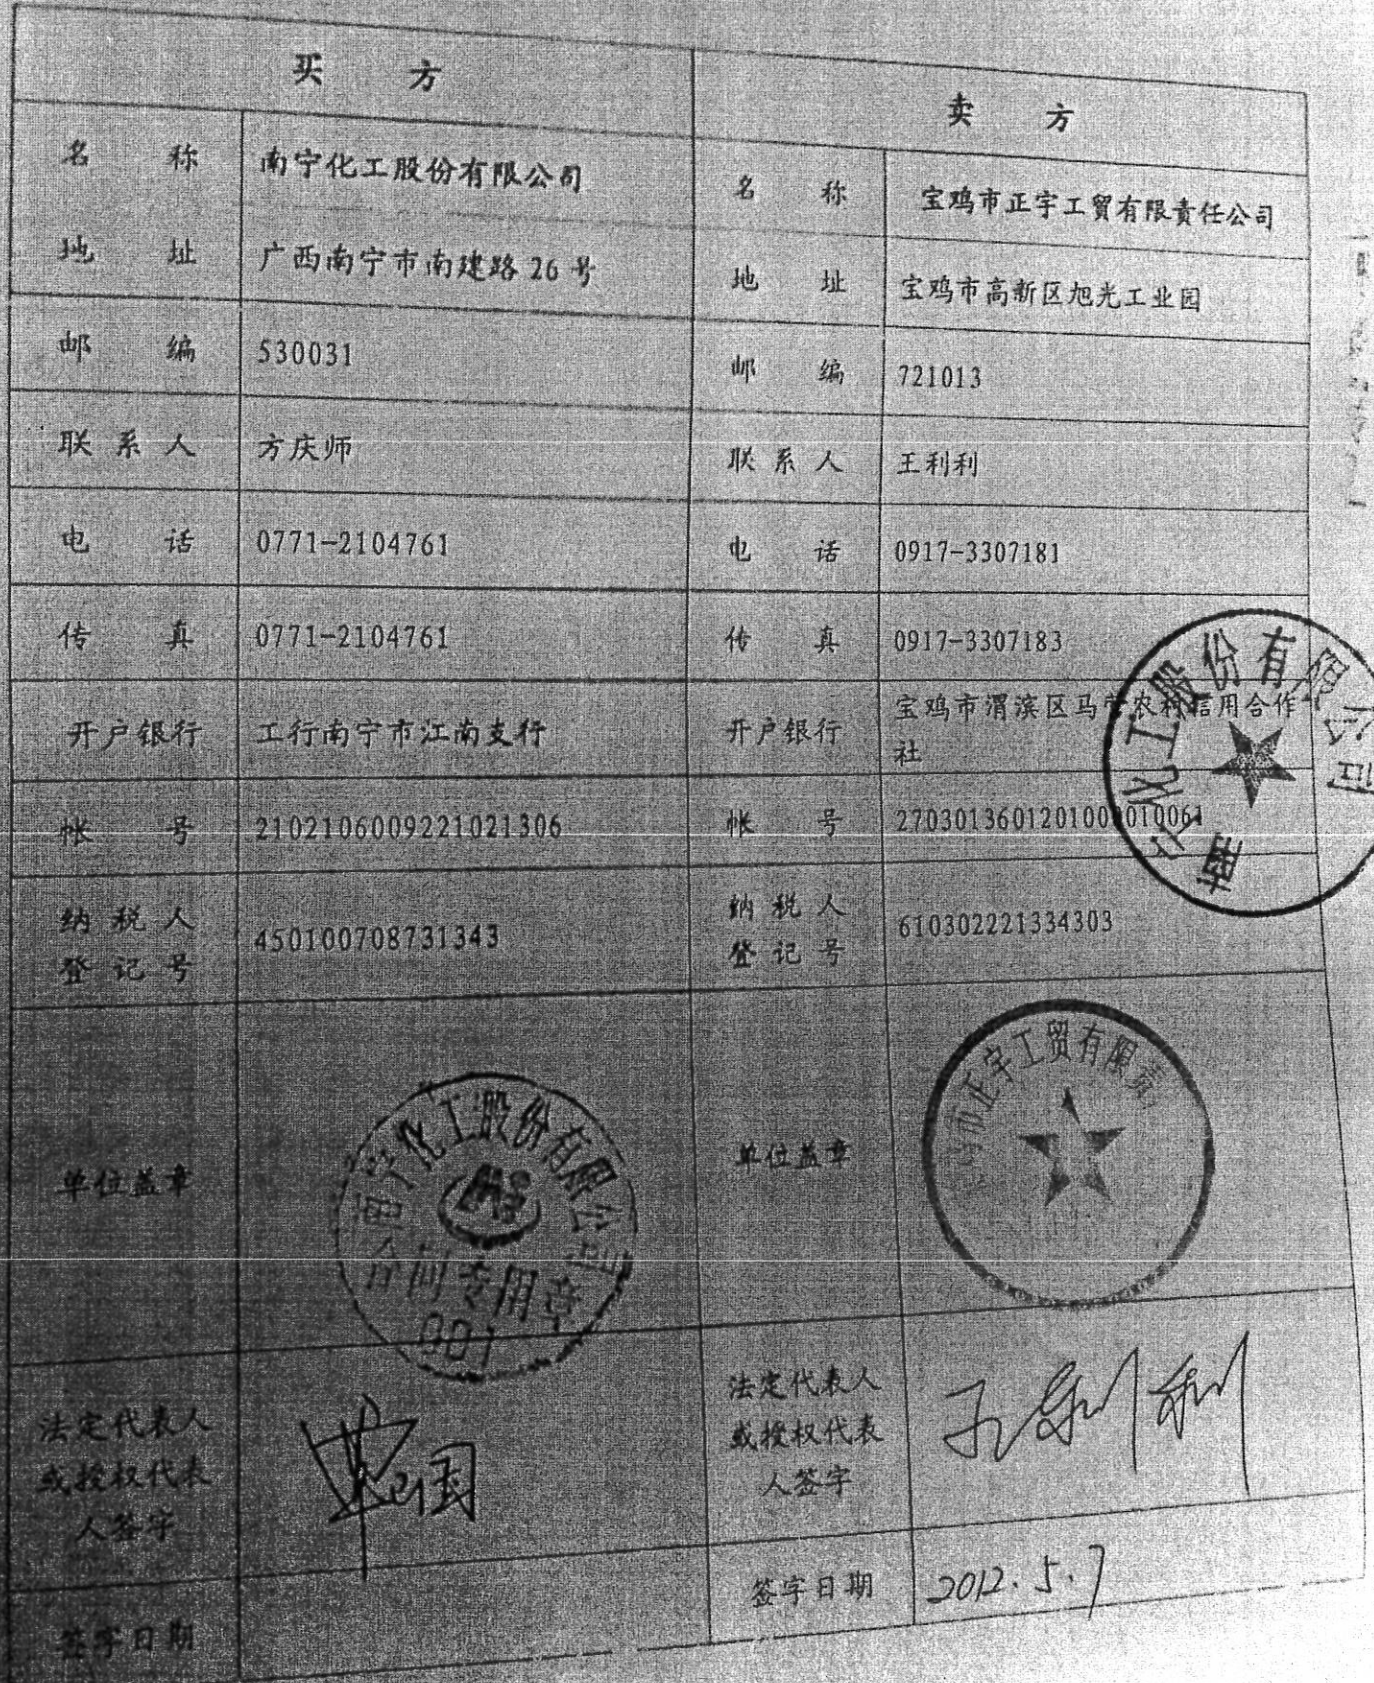 买 方
卖 方
名 称 南宁化工股份有限公司
名 称 宝鸡市正宇工贸有限责任公司
地 址 广西南宁市南建路 26 号
地 址 宝鸡市高新区旭光工业园
邮 编 530031
邮 编 721013
联 系 人 方庆师
联 系 人 王利利
电 话 0771-2104761
电 话 0917-3307181
传 真 0771-2104761
传 真 0917-3307183
开户银行 工行南宁市江南支行
开户银行 宝鸡市渭滨区马营农村信用合作
社
帐 号 2102106009221021306
帐 号
纳 税 人
登 记 号 450100708731343
纳 税 人
登 记 号 610302221334303
南宁化工股份有限公司
单位盖章
南宁化工股份有限公司
合同专用章
001
单位盖章
市正宇工贸有限责
法定代表人
或授权代表
人签字
法定代表人
或授权代表
人签字
王利利
签字日期
签字日期 2012.5.7